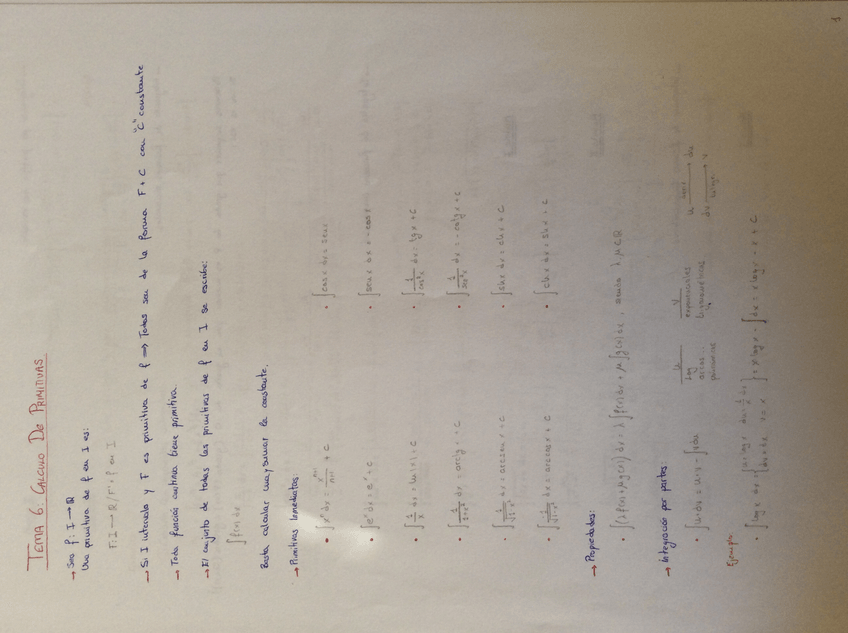 TEMA 6. CALCULO DE PRIMITIVAS
→ Sea f: I → R
Una primitiva de f en I es:
F: I → R / F' = f en I
→ Si I intervalo y F es primitiva de f ⇒ Todas son de la forma F + C con "C" constante
→ Toda función continua tiene primitiva.
→ El conjunto de todas las primitivas de f en I se escribe:
∫ f(x) dx
Basta calcular una y sumar la constante.
→ Primitivas Inmediatas:
• ∫ xⁿ dx = xⁿ⁺¹/n+1 + C • ∫ cosx dx = senx
• ∫ eˣ dx = eˣ + C • ∫ senx dx = -cosx
• ∫ 1/x dx = ln|x| + C • ∫ 1/cos²x dx = tgx + C
• ∫ 1/1+x² dx = arctgx + C • ∫ 1/sen²x dx = -cotgx + C
• ∫ 1/√1-x² dx = arcsenx + C • ∫ shx dx = chx + C
• ∫ dx = arccosx + C • ∫ chx dx = shx + C
→ Propiedades:
• ∫ (λf(x) + μg(x)) dx = λ∫ f(x) dx + μ∫ g(x) dx, λ, μ ∈ R
→ Integración por partes:
• ∫ u·dv = u·v - ∫ v·du
u v
Log exponenciales
arcos.. trigonométricas
polinomios
u → du
dv → v
Ejemplo:
• ∫ logx dx = { u = logx du = 1/x dx
dv = dx v = x } = x logx - ∫ dx = x logx - x + C
1